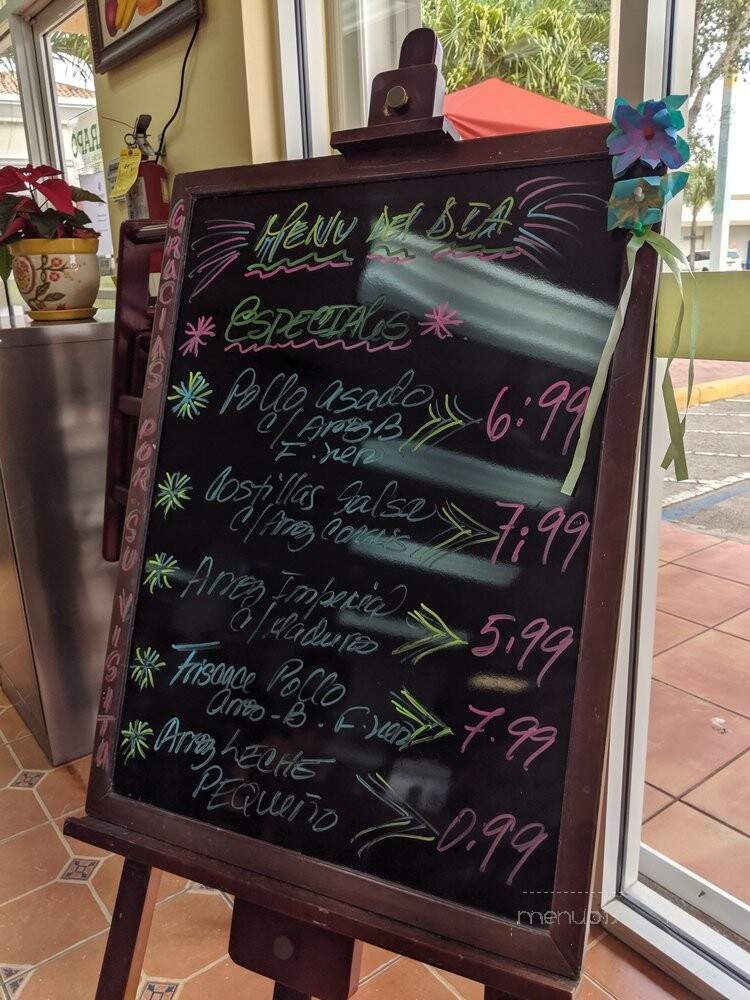 GRACIAS POR SU VISITA
MENU DEL DIA
ESPECIALES
Pollo asado
C/ Arroz B
F. Negro
6.99
Costillas Salsa
C/ Arroz Congris
7.99
Arroz Imperial
C/ Maduros
5.99
Pollo
Arroz-B. F. negro
7.99
Arroz LECHE
PEQUEÑO
0.99
menupix